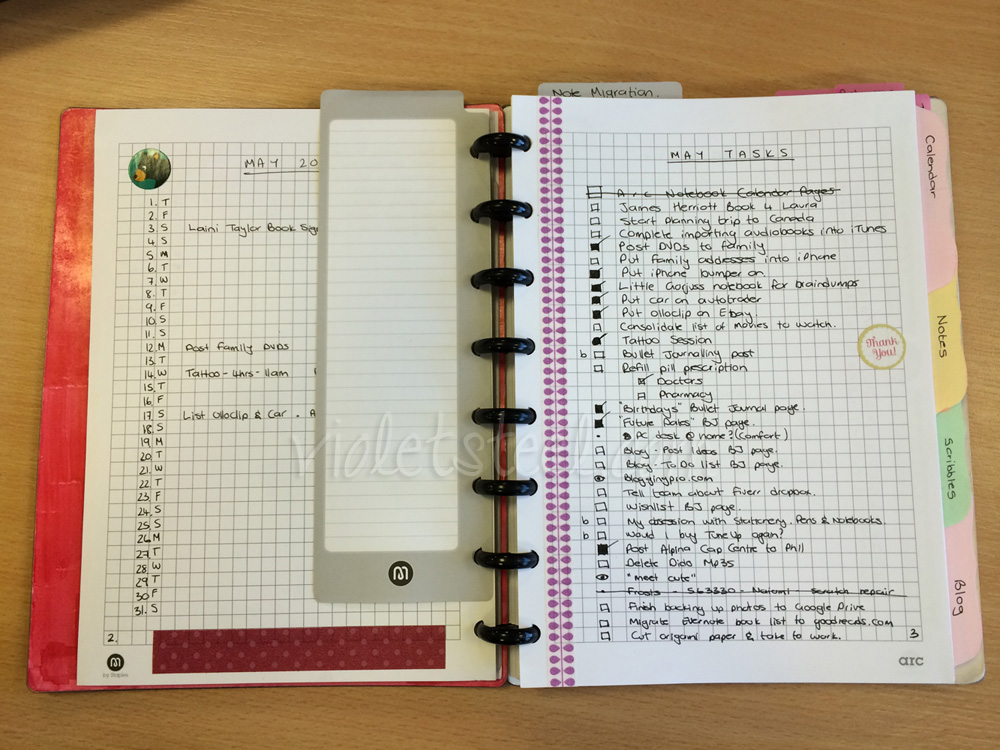 MAY 20
1. T
2. F
3. S Laini Taylor Book Sig
4. S
5. M
6. T
7. W
8. T
9. F
10. S
11. S
12. M Post family DVDs
13. T
14. W Tattoo - 4hrs - 11am
15. T
16. F
17. S List olloclip & Car.
18. S
19. M
20. T
21. W
22. T
23. F
24. S
25. S
26. M
27. T
28. W
29. T
30. F
31. S
2.
by Staples
Note Migration.
MAY TASKS
Arc Notebook Calendar Pages
James Herriott Book 4 Laura
Start planning trip to Canada
Complete importing audiobooks into iTunes
Post DVDs to family
Put family addresses into iPhone
Put iPhone bumper on
Little Gorjuss notebook for braindumps
Put car on autotrader
Put olloclip on Ebay.
Consolidate list of movies to watch.
Tattoo Session
b Bullet Journalling post
Refill pill prescription
Doctors
Pharmacy
"Birthdays" Bullet Journal page.
"Future Dates" BJ page.
PC desk @ home? (Comfort)
Blog - Post Ideas BJ page.
Blog - To Do list BJ page.
bloggingpro.com
Tell team about Fiverr dropbox.
Wishlist BJ page.
b My obsession with Stationery. Pens & Notebooks.
b Would I buy TuneUp again?
Post Alpina Cap Centre to Phil
Delete Dido Mp3s
"meet cute"
Frosts - 563330 - Naomi - Scratch repair
Finish backing up photos to Google Drive
Migrate Evernote book list to goodreads.com
Cut origami paper & take to work.
3
arc
Thank You!
Calendar
Notes
Scribbles
Blog